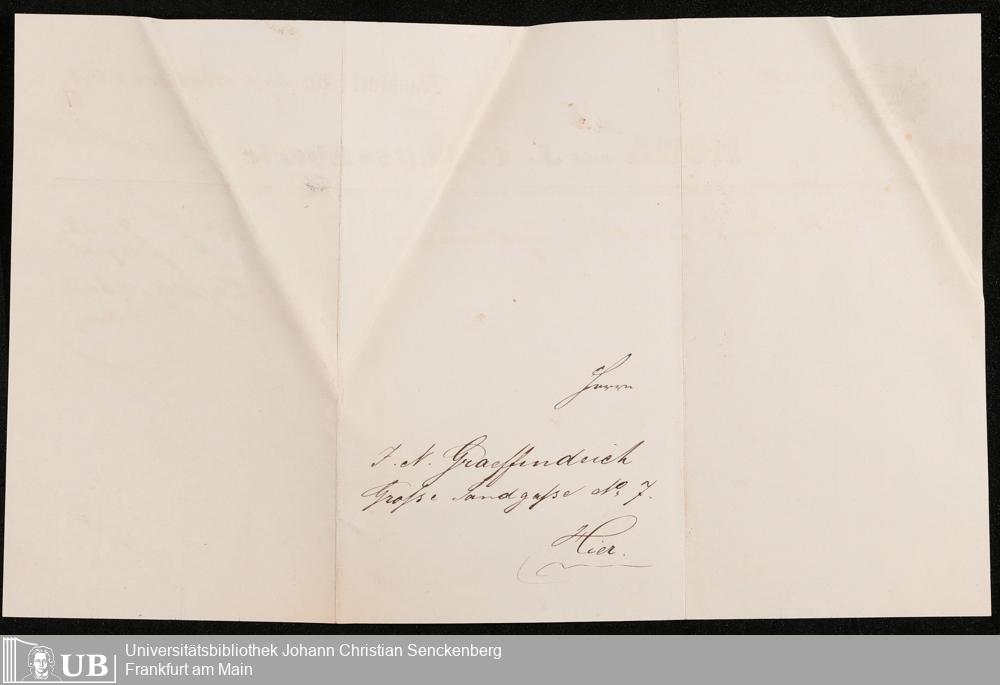 Herrn
J. N. Graeffendeich
Große Sandgaße No 7.
Hier.
UB
Universitätsbibliothek Johann Christian Senckenberg
Frankfurt am Main